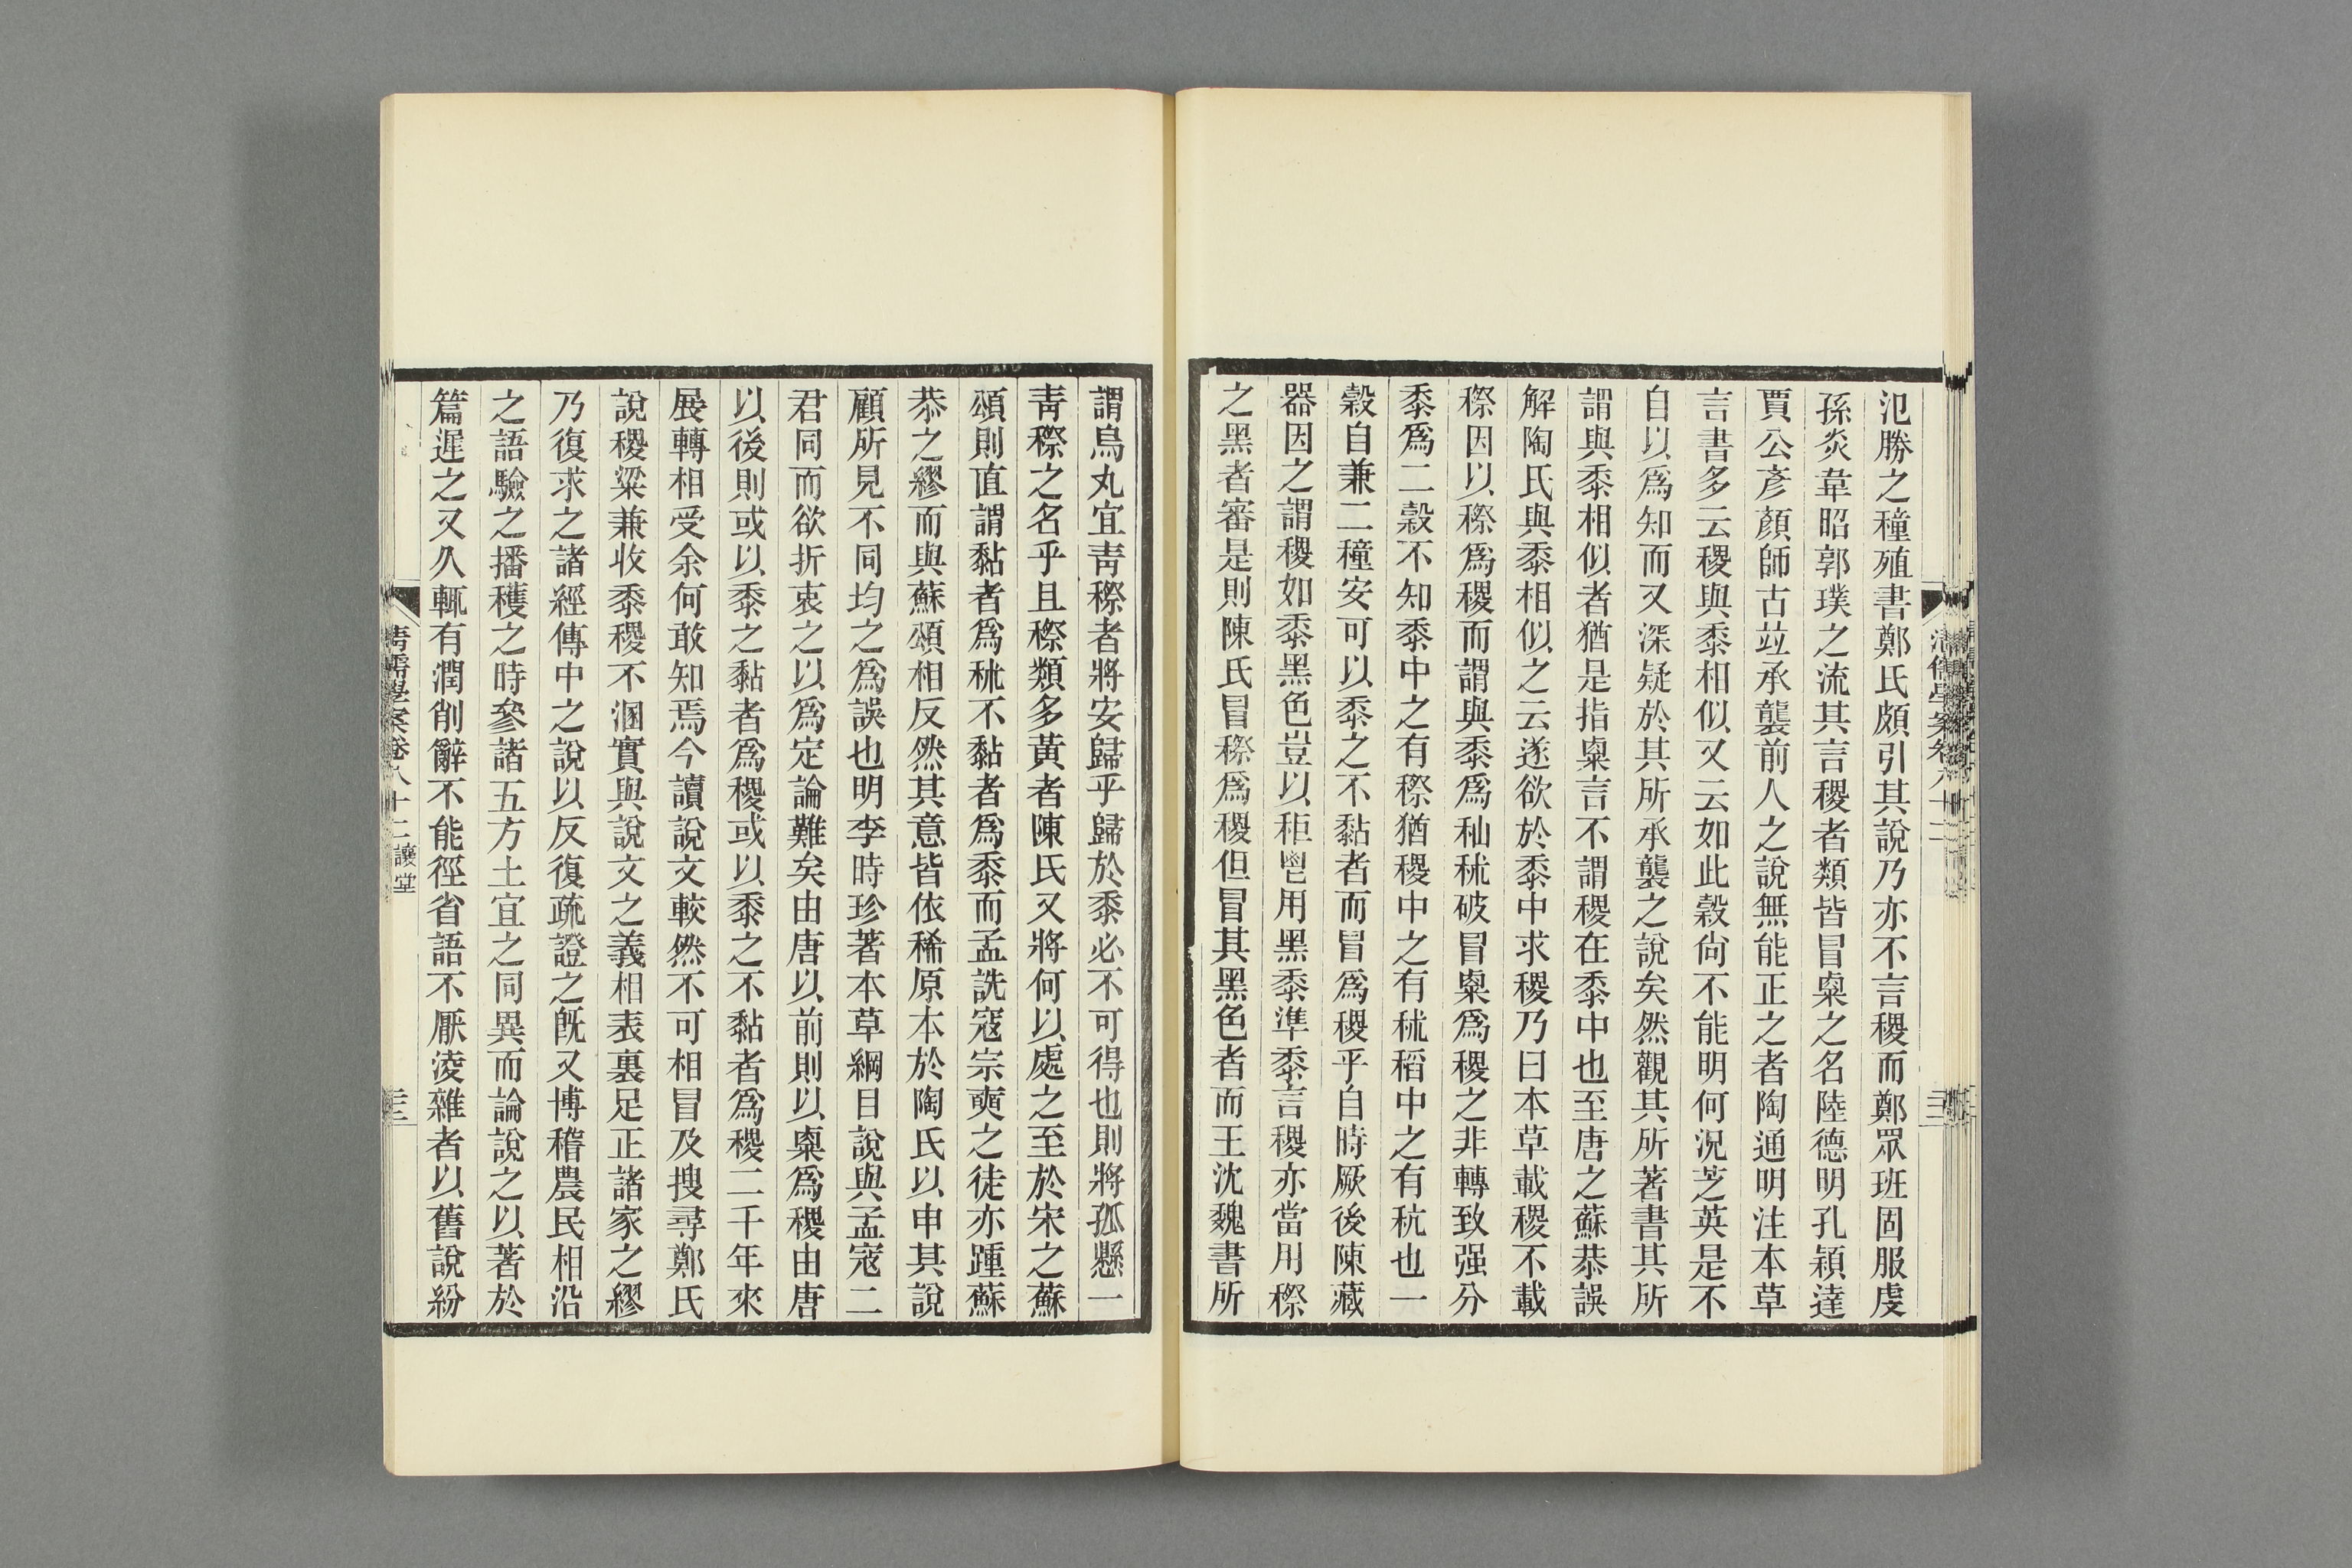 氾勝之種殖書鄭氏頗引其說乃亦不言稷而鄭眾班固服虔
孫炎韋昭郭璞之流其言稷者類皆冒粟之名陸德明孔穎達
賈公彥顏師古竝承襲前人之說無能正之者陶通明注本草
言書多云稷與黍相似又云如此穀尙不能明何況芝英是不
自以爲知而又深疑於其所承襲之說矣然觀其所著書其所
謂與黍相似者猶是指粟言不謂稷在黍中也至唐之蘇恭誤
解陶氏與黍相似之云遂欲於黍中求稷乃曰本草載稷不載
穄因以穄爲稷而謂與黍爲秈秫破冒粟爲稷之非轉致强分
黍爲二穀不知黍中之有穄猶稷中之有秫稻中之有秔也一
穀自兼二種安可以黍之不黏者而冒爲稷乎自時厥後陳藏
器因之謂稷如黍黑色豈以秬鬯用黑黍準黍言稷亦當用穄
之黑者審是則陳氏冒穄爲稷但冒其黑色者而王沈魏書所
謂烏丸宜靑穄者將安歸乎歸於黍必不可得也則將孤懸一
靑穄之名乎且穄類多黃者陳氏又將何以處之至於宋之蘇
頌則直謂黏者爲秫不黏者爲黍而孟詵寇宗奭之徒亦踵蘇
恭之繆而與蘇頌相反然其意皆依稀原本於陶氏以申其說
顧所見不同均之爲誤也明李時珍著本草綱目說與孟寇二
君同而欲折衷之以爲定論難矣由唐以前則以粟爲稷由唐
以後則或以黍之黏者爲稷或以黍之不黏者爲稷二千年來
展轉相受余何敢知焉今讀說文較然不可相冒及搜尋鄭氏
說稷粱兼收黍稷不溷實與說文之義相表裏足正諸家之繆
乃復求之諸經傳中之說以反復疏證之旣又博稽農民相沿
之語驗之播穫之時參諸五方土宜之同異而論說之以著於
篇遲之又久輒有潤削辭不能徑省語不厭淩雜者以舊說紛
清儒學案卷八十二 讓堂